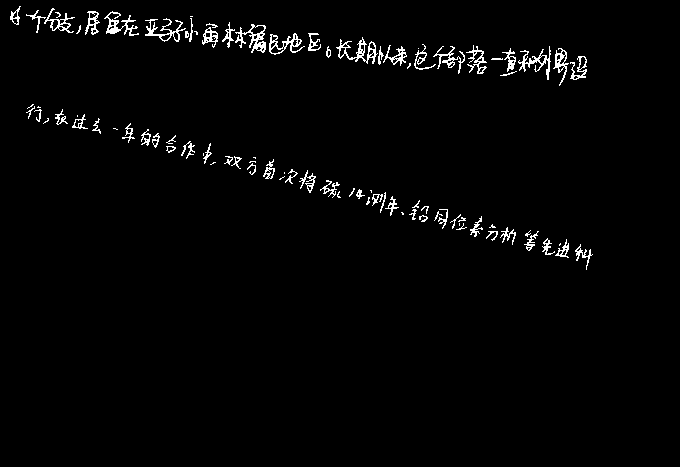 的一个分支,居住在亚马孙雨林偏远地区。长期以来,这个部落一直和外界没
行,在过去一年的合作中,双方首次将碳14测年、铅同位素分析等先进科